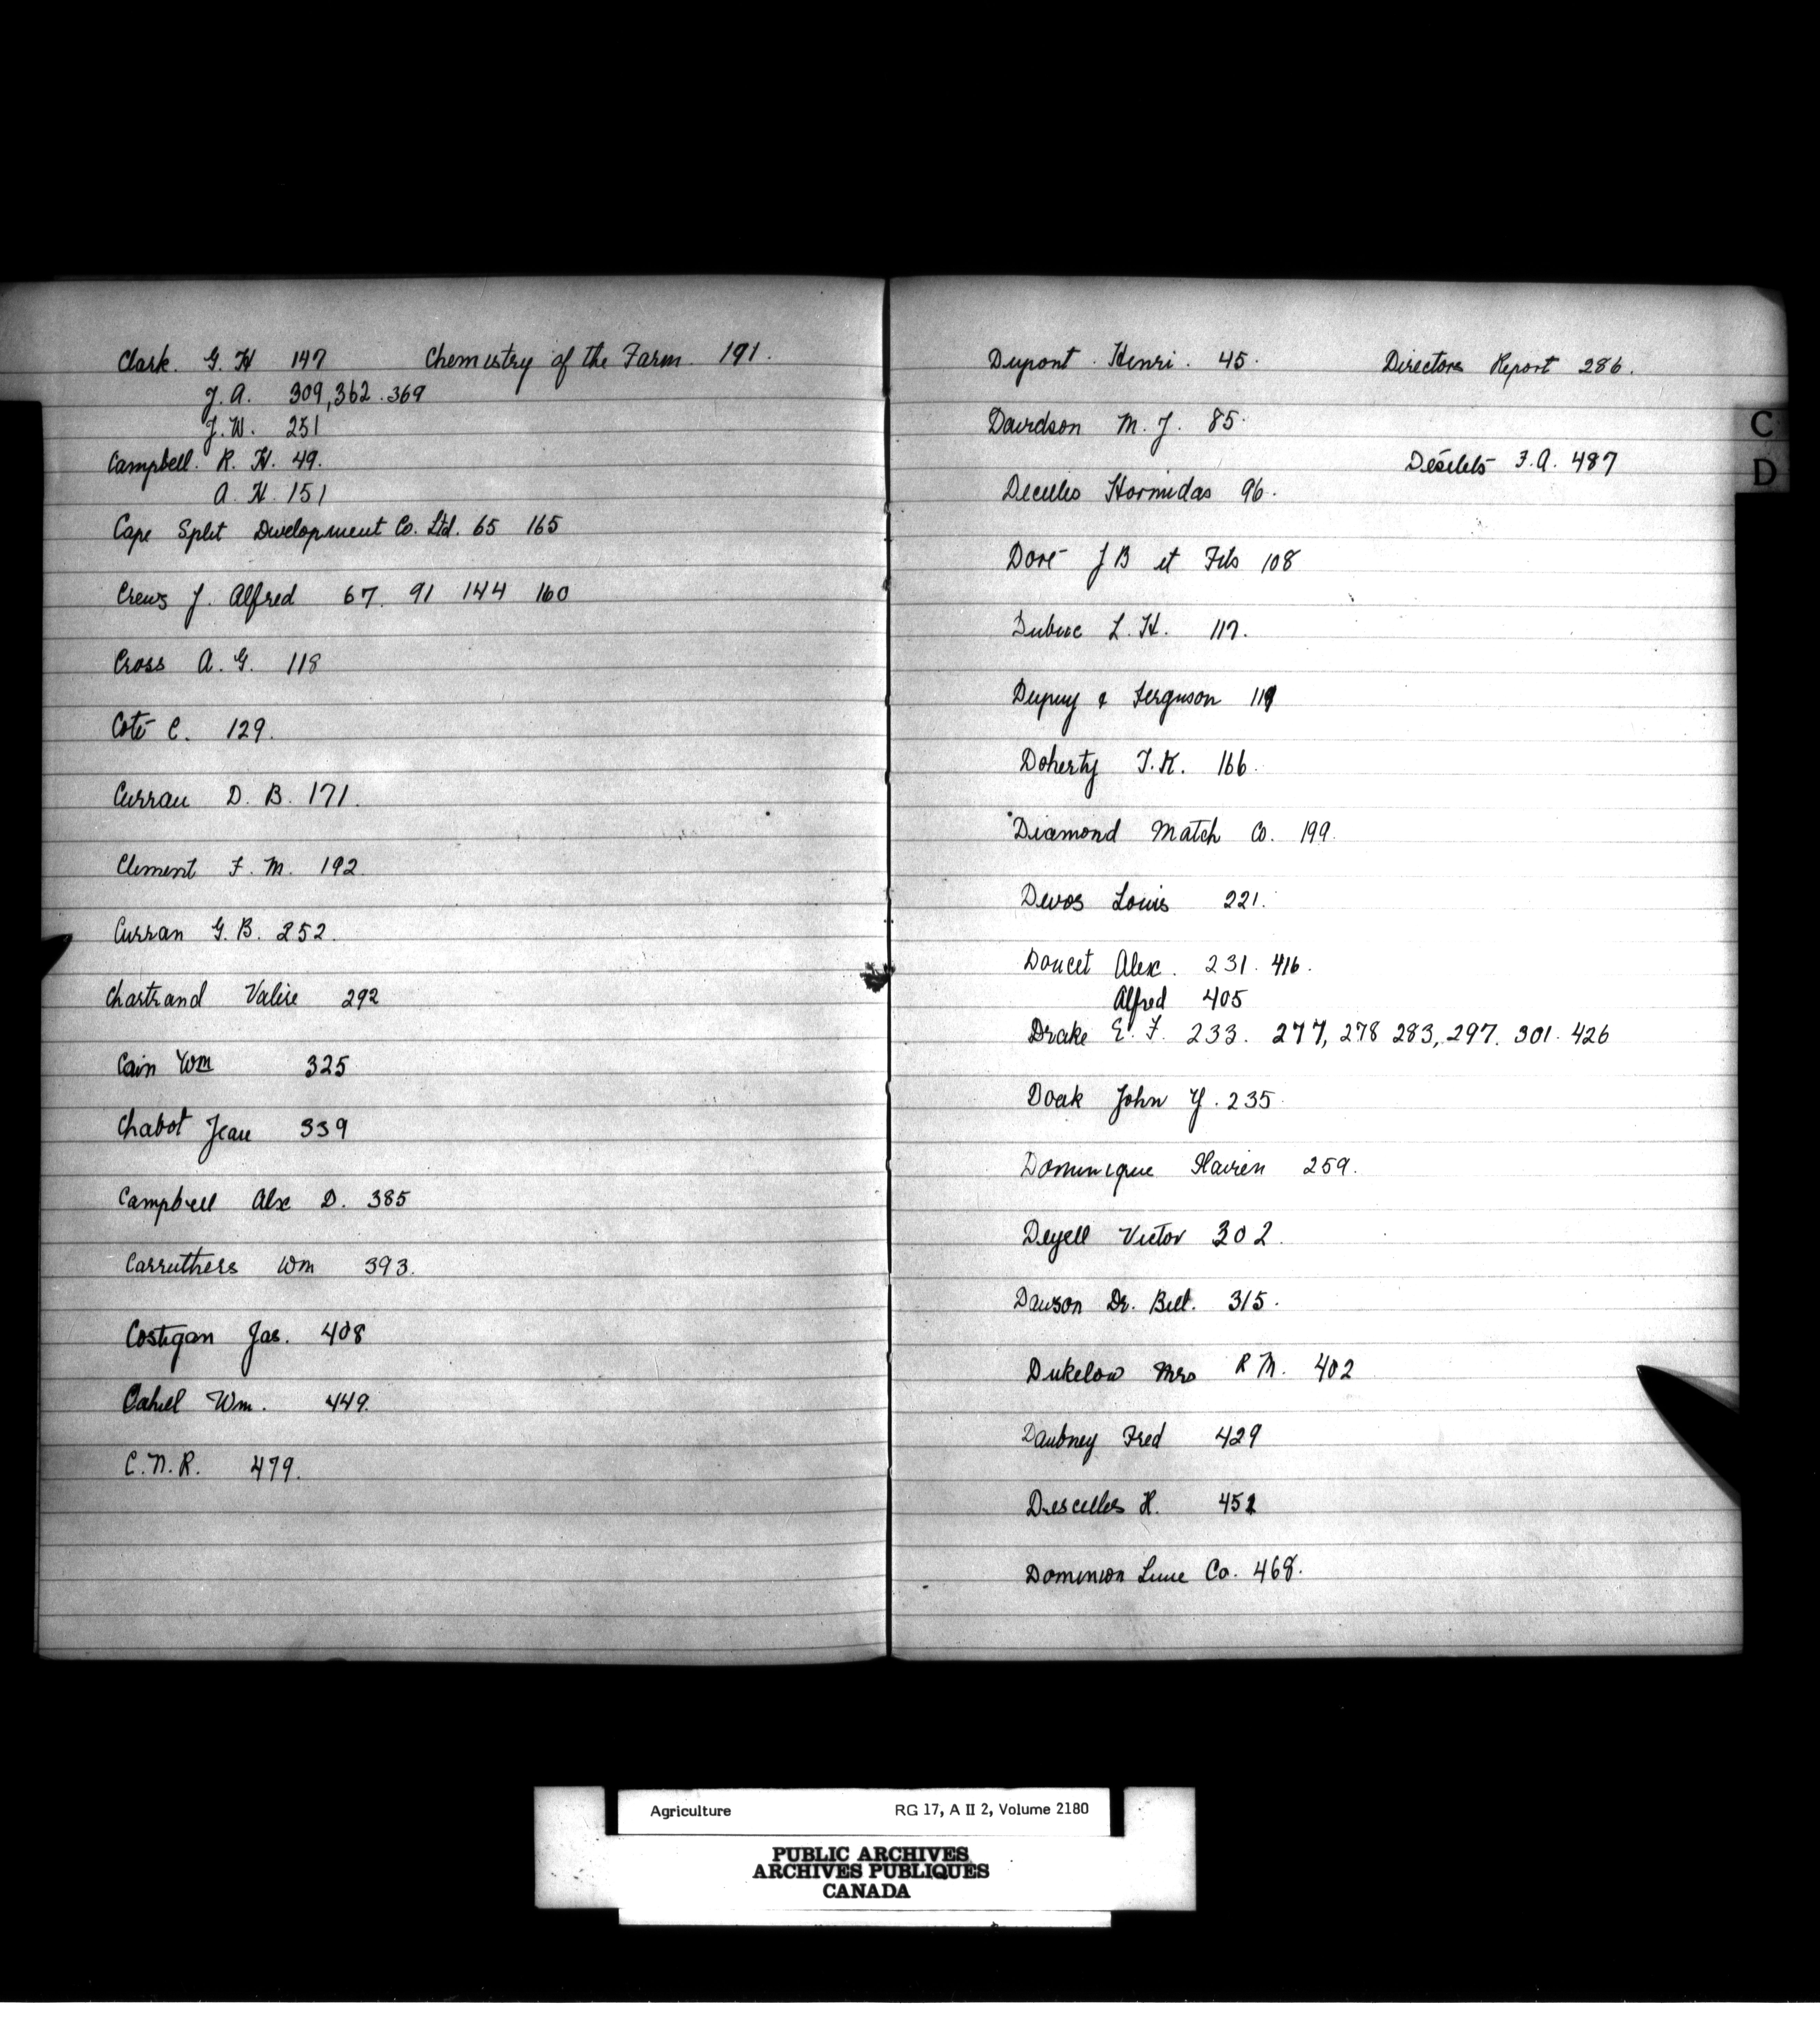 Clark. G. H 147
Chemistry of the Farm. 191.
J. A. 309, 362. 369
J. W. 251
Campbell. R. H. 49.
A. H. 151
Cape Split Development Co. Ltd. 65 165
Crews J. Alfred 67. 91 144 160
Cross A. G. 118
Coté C. 129.
Curran D. B. 171.
Clement F. M. 192.
Curran G. B. 252.
Chartrand Valire 292
Cain Wm 325
Chabot Jean 339
Campbell Alx D. 385
Carruthers Wm 393.
Costigan Jas. 408
Cahill Wm. 449.
C. N. R. 479.
Dupont. Henri. 45.
Directors Report 286.
Davidson M. J. 85.
C
Désilets J. A. 487
D
Decelles Hormidas 96.
Doré J B et Fils 108
Dubuc L. H. 117.
Dupuy & Ferguson 119
Doherty T. K. 166.
Diamond Match Co. 199.
Devos Louis 221.
Doucet Alex. 231. 416.
Alfred 405
Drake E. F. 233. 277, 278 283, 297. 301. 426
Doak John Y. 235
Dominique 259.
Deyell Victor 302.
Dawson Dr. Bell. 315.
Dukelow Mrs R M. 402
Daubney Fred 429
Descelles H. 452
Dominion Lime Co. 468.
Agriculture RG 17, A II 2, Volume 2180
PUBLIC ARCHIVES
ARCHIVES PUBLIQUES
CANADA